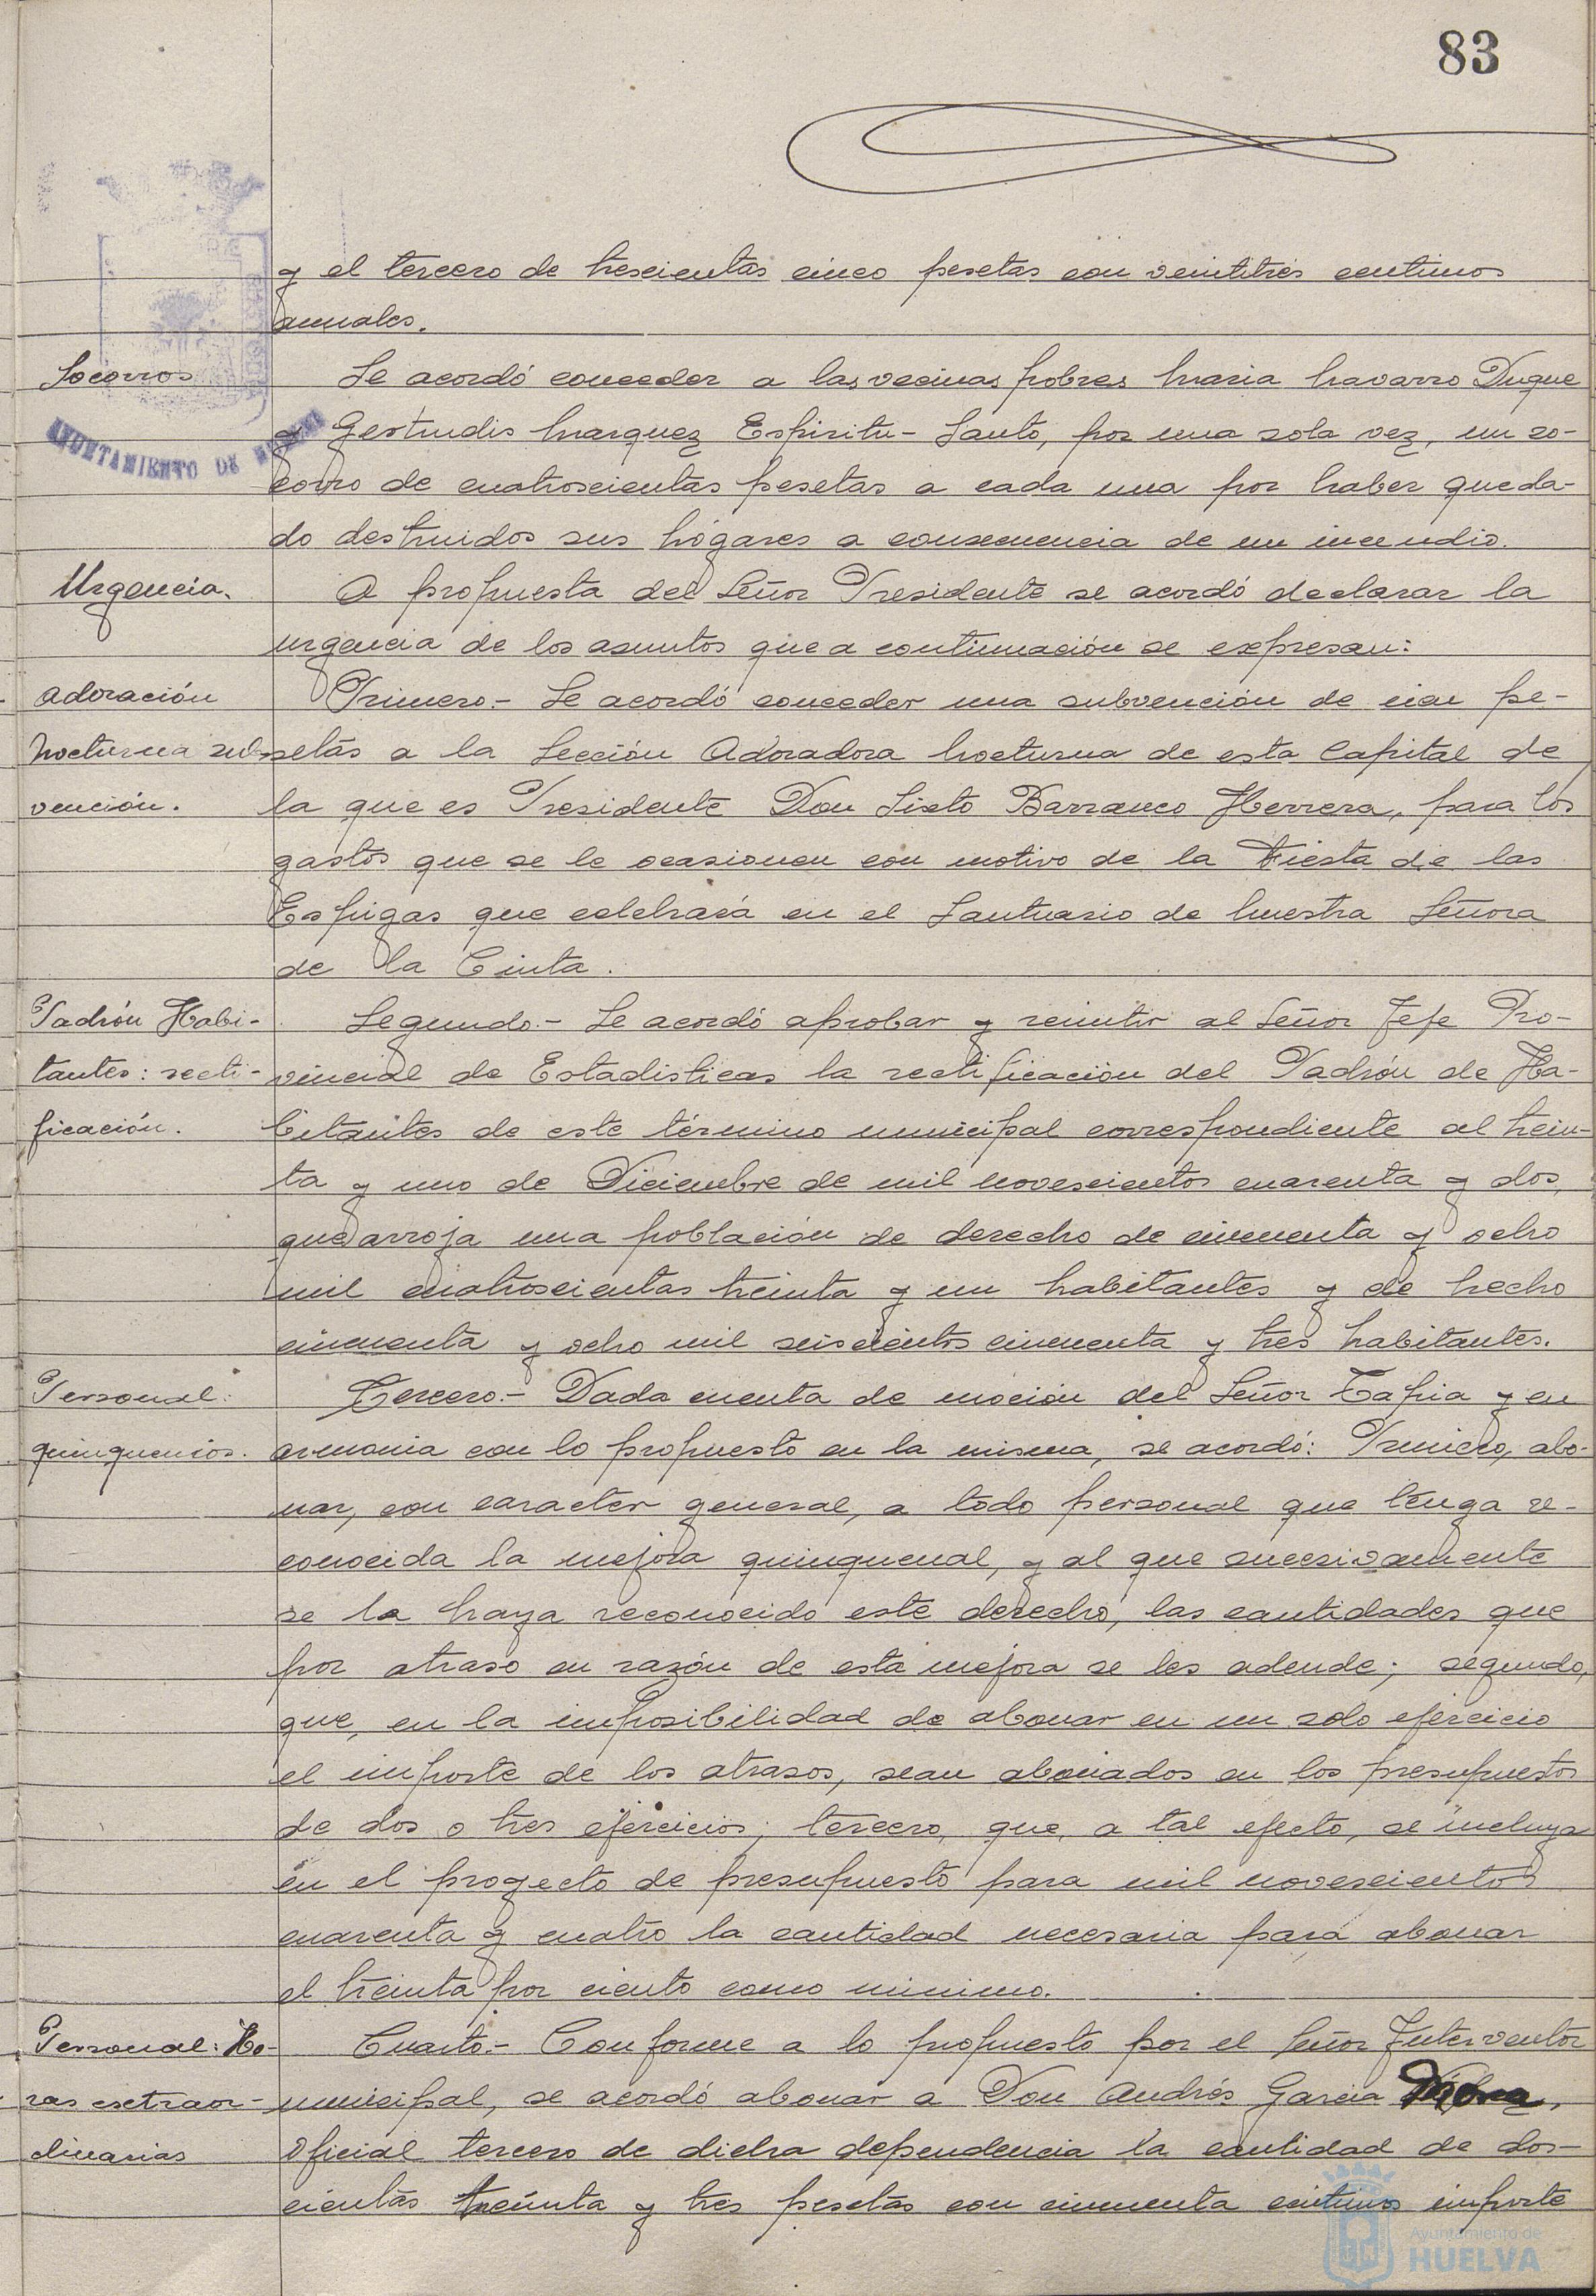 83
y el tercero de trescientas cinco pesetas con veintitrés centimos
anuales.
Socorros
Se acordó conceder a las vecinas pobres Maria Navarro Duque
y Gertrudis Marquez Espiritu-Santo, por una sola vez, un so-
AYUNTAMIENTO DE HUELVA
corro de cuatroscientas pesetas a cada una por haber queda-
do destruidos sus hógares a consecuencia de un incendio.
Urgencia.
A propuesta del Señor Presidente se acordó declarar la
urgencia de los asuntos que a continuación se expresan:
Adoración
Primero.- Se acordó conceder una subvención de cien pe-
Nocturna sub-
setas a la Sección Adoradora Nocturna de esta Capital de
vención.
la que es Presidente Don Sixto Barranco Herrera, para los
gastos que se le ocasionen con motivo de la Fiesta de las
Espigas que celebrará en el Santuario de Nuestra Señora
de la Cinta.
Padrón Habi-
Segundo.- Se acordó aprobar y remitir al Señor Jefe Pro-
tantes: recti-
vincial de Estadisticas la rectificación del Padrón de Ha-
ficación.
bitantes de este término municipal correspondiente al trein-
ta y uno de Diciembre de mil novescientos cuarenta y dos,
que arroja una población de derecho de cincuenta y ocho
mil cuatroscientas treinta y un habitantes y de hecho
cincuenta y ocho mil seiscientos cincuenta y tres habitantes.
Personal:
Tercero.- Dada cuenta de moción del Señor Tapia y en
quinquenios.
armonia con lo propuesto en la misma, se acordó: Primero, abo-
nar, con caracter general, a todo personal que tenga re-
conocida la mejora quinquenal, y al que sucesivamente
se la haya reconocido este derecho, las cantidades que
por atraso en razón de esta mejora se les adeude; segundo,
que, en la imposibilidad de abonar en un solo ejercicio
el importe de los atrasos, sean abonados en los presupuestos
de dos o tres ejercicios; tercero, que, a tal efecto, se incluya
en el proyecto de presupuesto para mil novescientos
cuarenta y cuatro la cantidad necesaria para abonar
el treinta por ciento como minimo.
Personal: Ho-
Cuarto.- Conforme a lo propuesto por el Señor Interventor
ras extraor-
municipal, se acordó abonar a Don Andrés Garcia
dinarias
oficial tercero de dicha dependencia la cantidad de dos-
cientas treinta y tres pesetas con cincuenta centimos importe
Ayuntamiento de
HUELVA